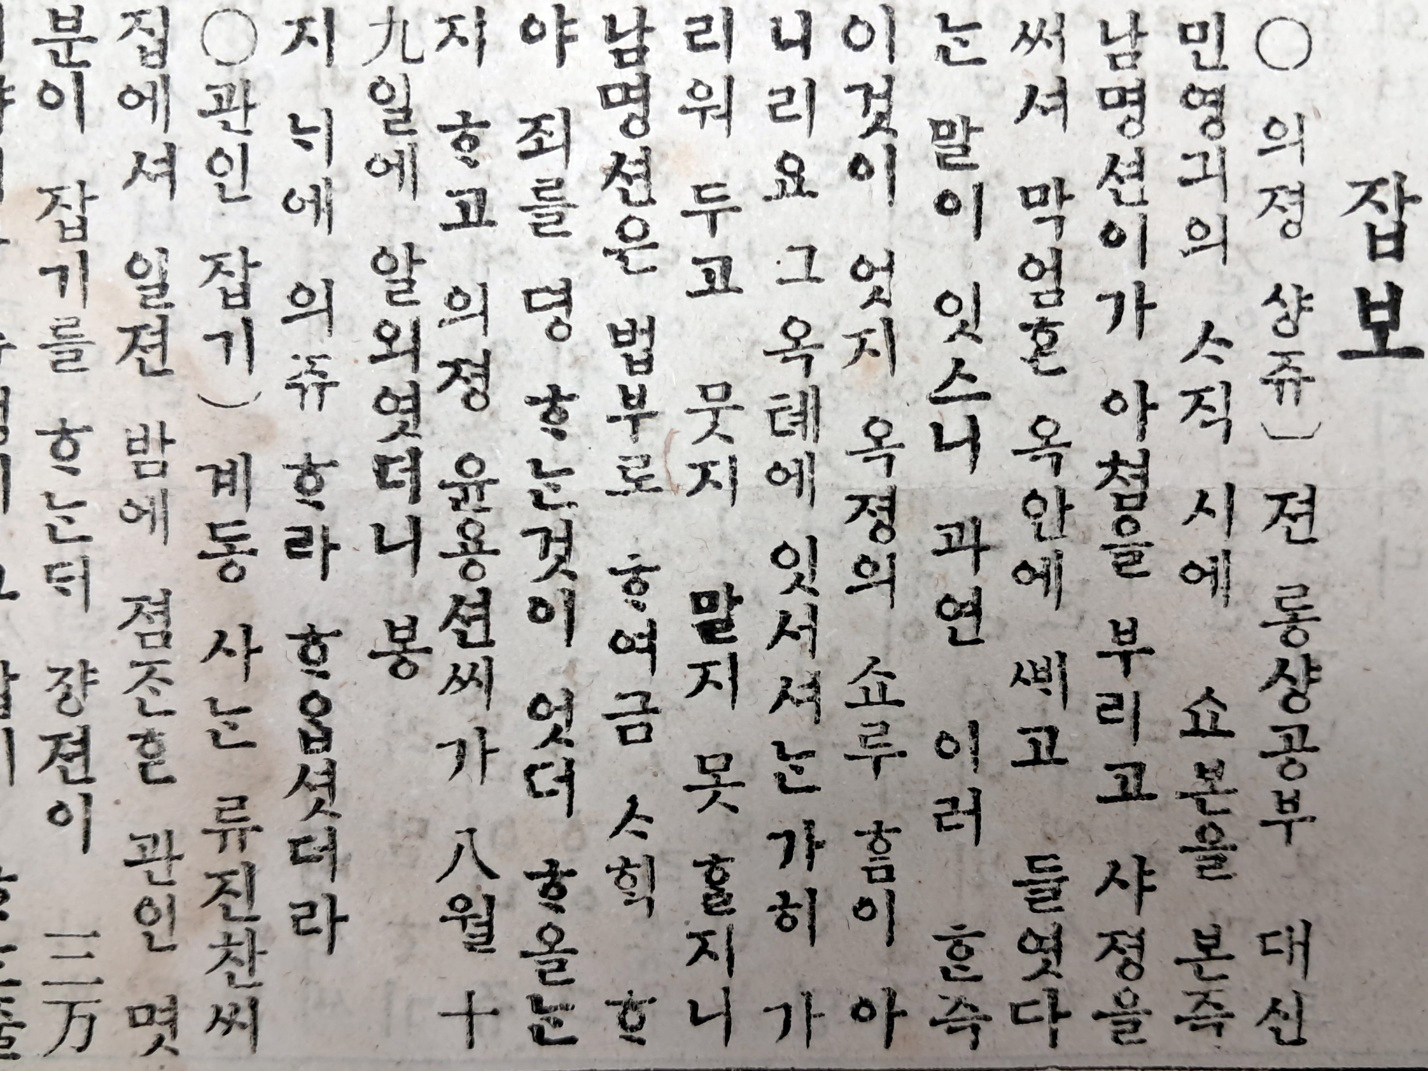 잡보
○의졍 샹쥬) 젼 롱샹공부 대신
민영긔의 ᄉ직 시에 쇼본을 본즉
남명션이가 아쳠을 부리고 샤졍을
써셔 막엄ᄒᆞᆫ 옥안에 ᄲᅵ고 들엿다
ᄂᆞᆫ 말이 잇스니 과연 이러 ᄒᆞᆫ즉
이것이 엇지 옥졍의 쇼루 ᄒᆞᆷ이 아
니리요 그 옥톄에 잇서셔ᄂᆞᆫ 가히 가
리워 두고 뭇지 말지 못 ᄒᆞᆯ지니
남명션은 법부로 ᄒᆞ여금 ᄉᆞ획 ᄒᆞ
야 죄를 뎡 ᄒᆞᄂᆞᆫ것이 엇더 ᄒᆞ올ᄂᆞᆫ
지 ᄒᆞ고 의졍 윤용션씨가 八월 十
九일에 알외엿더니 봉
지 ᄂᆡ에 의쥬 ᄒᆞ라 ᄒᆞ옵셧더라
○관인 잡기) 계동 사ᄂᆞᆫ 류진찬씨
집에셔 일젼 밤에 졈ᄌᆞᆫᄒᆞᆫ 관인 몃
분이 잡기를 ᄒᆞᄂᆞᆫᄃᆡ 쟝젼이 三二万